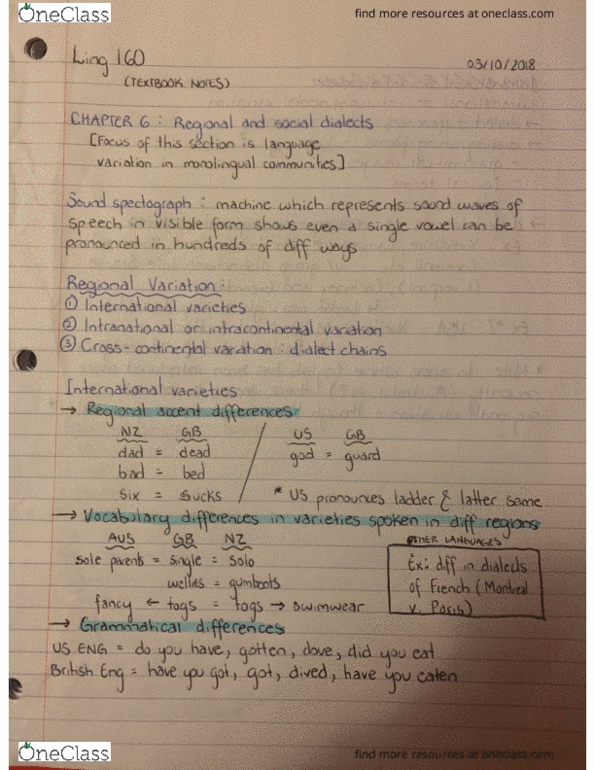 OneClass
find more resources at oneclass.com
Ling 160
03/10/2018
(TEXTBOOK NOTES)
CHAPTER 6: Regional and social dialects
[Focus of this section is language
variation in monolingual communities]
Sound spectograph: machine which represents sound waves of
speech in visible form shows even a single vowel can be
pronounced in hundreds of diff ways
Regional Variation:
① International varieties
② Intranational or intracontinental variation
③ Cross-continental variation: dialect chains
International varieties
→ Regional accent differences
NZ GB / US GB
dad = dead god = guard
bad = bed
six = sucks * US pronounces ladder & latter same
→ Vocabulary differences in varieties spoken in diff regions
AUS GB NZ
sole parents = single = solo
wellies = gumboots
fancy ← togs = togs → swimwear
OTHER LANGUAGES
Ex: diff in dialects
of French (Montreal
v. Paris)
→ Grammatical differences
US ENG = do you have, gotten, dove, did you eat
British Eng = have you got, got, dived, have you eaten
OneClass
find more resources at oneclass.com